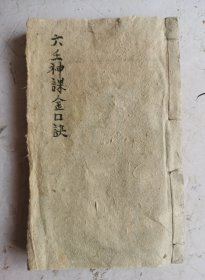 六壬神課金口訣